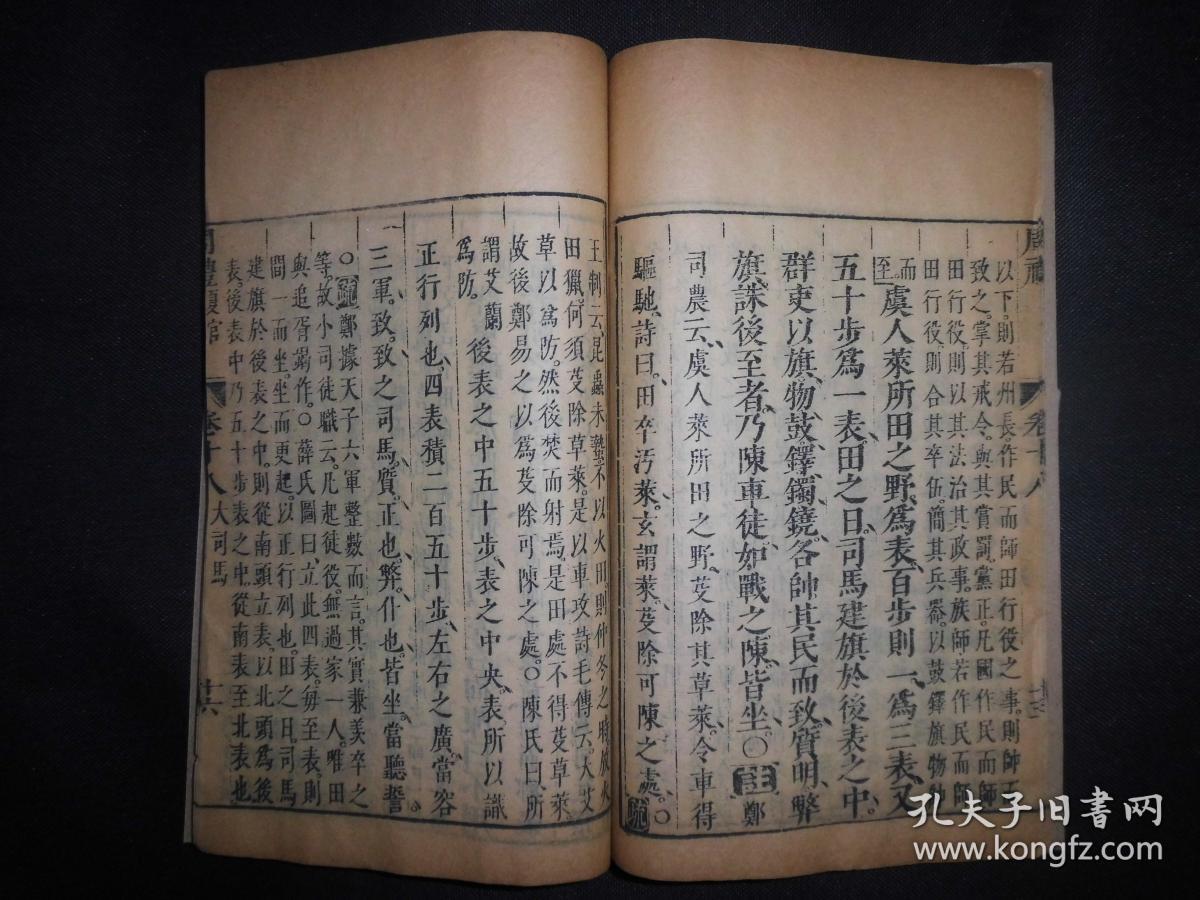 以下則若州長作民而師田行役之事則帥而
致之掌其戒令與其賞罰黨正凡國作民而師
田行役則以其法治其政事族師若作民而師
田行役則合其卒伍簡其兵器以鼓鐸旗物帥
而至。虞人萊所田之野爲表百步則一爲三表又
五十步爲一表田之日司馬建旗於後表之中
群吏以旗物鼓鐸鐲鐃各帥其民而致質明弊
旗誅後至者乃陳車徒如戰之陳皆坐〇註鄭
司農云虞人萊所田之野芟除其草萊令車得
驅馳詩曰田卒汚萊玄謂萊芟除可陳之處〇疏
王制云昆蟲未蟄不以火田則仲冬之時放火
田獵何須芟除草萊是以車攻詩毛傳云大艾
草以爲防然後焚而射焉是田處不得芟草萊
故後鄭易之以爲芟除可陳之處〇陳氏曰所
謂艾蘭
爲防 後表之中五十步表之中央表所以識
正行列也四表積二百五十步左右之廣當容
三軍致致之司馬質正也弊仆也皆坐當聽誓
〇疏鄭據天子六軍整數而言其實兼羨卒之
等故小司徒職云凡起徒役無過家一人唯田
與追胥竭作〇薛氏圖曰立此四表每至表則
間一而坐坐而更起以正行列也田之日司馬
建旗於後表之中則從南頭立表以北頭爲後
表後表中乃五十步表之中從南表至北表也
周禮夏官 卷十八 大司馬 十六
周禮 卷十八
孔夫子旧书网
www.kongfz.com